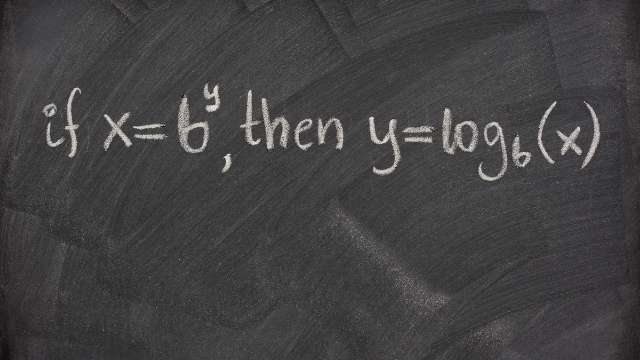 if x=b^y, then y=log_b(x)